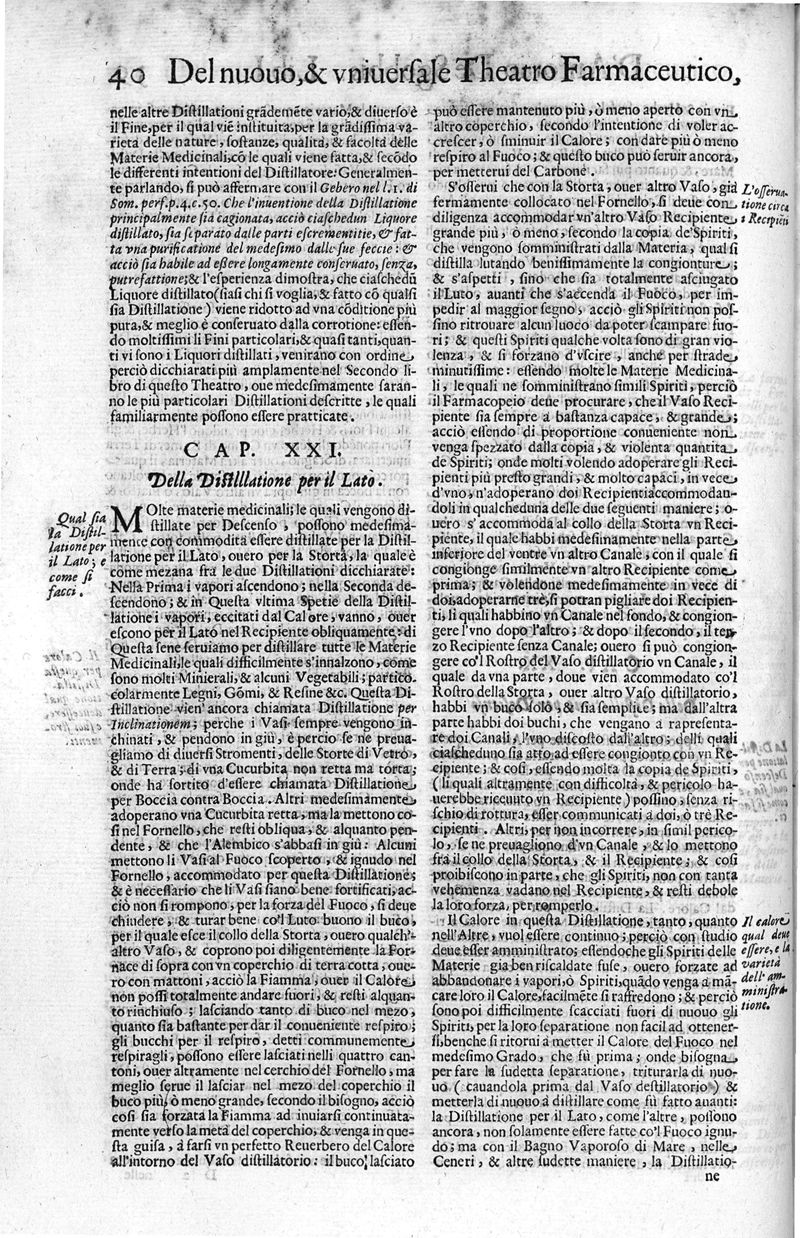 40 Del nuouo, & vniuersale Theatro Farmaceutico,
nelle altre Distillationi grãdemẽte vario, & diuerso è
il Fine, per il qual viẽ instituita, per la grãdissima va-
rietà delle nature, sostanze, qualità, & facoltà delle
Materie Medicinali, cõ le quali viene fatta, & secõdo
le differenti intentioni del Distillatore: Generalmen-
te parlando, si può affermare con il Gebero nel l. 1. di
Som. perf. p. 4. c. 50. Che l'inuentione della Distillatione
principalmente sia cagionata, acciò ciaschedun Liquore
distillato, sia separato dalle parti escrementitie, & fat-
ta vna purificatione del medesimo dalle sue feccie: &
acciò sia habile ad essere longamente conseruato, senza
putrefattione; & l'esperienza dimostra, che ciaschedũ
Liquore distillato (siasi chi si voglia, & fatto cõ qualsi
sia Distillatione) viene ridotto ad vna cõditione più
pura, & meglio è conseruato dalla corrotione: essen-
do moltissimi li Fini particolari, & quasi tanti, quan-
ti vi sono i Liquori distillati, venirano con ordine
perciò dicchiarati più amplamente nel Secondo li-
bro di questo Theatro, oue medesimamente saran-
no le più particolari Distillationi descritte, le quali
familiarmente possono essere pratticate.
CAP. XXI.
Della Distillatione per il Lato.
Qual sia
la Distil-
latione per
il Lato; e
come si
facci.
MOlte materie medicinali; le quali vengono di-
stillate per Descenso, possono medesima-
mente con commodità essere distillate per la Distil-
latione per il Lato, ouero per la Storta, la quale è
come mezana fra le due Distillationi dicchiarate:
Nella Prima i vapori ascendono; nella Seconda de-
scendono; & in Questa vltima Spetie della Distil-
latione i vapori, eccitati dal Calore, vanno, ouer
escono per il Lato nel Recipiente obliquamente: di
Questa sene seruiamo per distillare tutte le Materie
Medicinali, le quali difficilmente s'innalzono, come
sono molti Minierali, & alcuni Vegetabili; partico-
colarmente Legni, Gõmi, & Resine &c. Questa Di-
stillatione vien' ancora chiamata Distillatione per
Inclinationem; perche i Vasi sempre vengono in-
chinati, & pendono in giù, è perciò se ne preua-
gliamo di diuersi Stromenti, delle Storte di Vetro,
& di Terra; di vna Cucurbita non retta ma torta;
onde ha sortito d'essere chiamata Distillatione
per Boccia contra Boccia. Altri medesimamente
adoperano vna Cucurbita retta, ma la mettono co-
sì nel Fornello, che resti obliqua, & alquanto pen-
dente, & che l'Alembico s'abbasi in giù: Alcuni
mettono li Vasi al Fuoco scoperto, & ignudo nel
Fornello, accommodato per questa Distillatione;
& è necessario che li Vasi siano bene fortificati, ac-
ciò non si rompono, per la forza del Fuoco, si deue
chiudere, & turar bene co'l Luto buono il buco,
per il quale esce il collo della Storta, ouero qualch'
altro Vaso, & coprono poi diligentemente la For-
nace di sopra con vn coperchio di terra cotta, oue-
ro con mattoni, acciò la Fiamma, ouer il Calore
non possi totalmente andare fuori, & resti alquan-
to rinchiuso; lasciando tanto di buco nel mezo,
quanto sia bastante per dar il conueniente respiro;
gli bucchi per il respiro, detti communemente
respiragli, possono essere lasciati nelli quattro can-
toni, ouer altramente nel cerchio del Fornello, ma
meglio serue il lasciar nel mezo del coperchio il
buco più, ò meno grande, secondo il bisogno, acciò
così sia forzata la Fiamma ad inuiarsi continuata-
mente verso la metà del coperchio, & venga in que-
sta guisa, à farsi vn perfetto Reuerbero del Calore
all'intorno del Vaso distillatorio: il buco lasciato
può essere mantenuto più, ò meno aperto con vn
altro coperchio, secondo l'intentione di voler ac-
crescer, ò sminuir il Calore; con dare più ò meno
respiro al Fuoco; & questo buco può seruir ancora,
per metterui del Carbone.
S'osserui che con la Storta, ouer altro Vaso, già
fermamente collocato nel Fornello, si deue con
diligenza accommodar vn'altro Vaso Recipiente
grande più, ò meno, secondo la copia de'Spiriti,
che vengono somministrati dalla Materia, qual si
distilla lutando benissimamente la congionture;
& s'aspetti, sino che sia totalmente asciugato
il Luto, auanti che s'accenda il Fuoco, per im-
pedir al maggior segno, acciò gli Spiriti non pos-
sino ritrouare alcun luoco da poter scampare fuo-
ri; & questi Spiriti qualche volta sono di gran vio-
lenza, & si forzano d'vscire, anche per strade
minutissime: essendo molte le Materie Medicina-
li, le quali ne somministrano simili Spiriti, perciò
il Farmacopeio deue procurare, che il Vaso Reci-
piente sia sempre à bastanza capace, & grande;
acciò essendo di proportione conueniente non
venga spezzato dalla copia, & violenta quantità
de Spiriti; onde molti volendo adoperare gli Reci-
pienti più presto grandi, & molto capaci, in vece
d'vno, n'adoperano doi Recipienti accommodan-
doli in qualcheduna delle due seguenti maniere; o-
uero s'accommoda al collo della Storta vn Reci-
piente, il quale habbi medesimamente nella parte
inferiore del ventre vn altro Canale, con il quale si
congionge similmente vn altro Recipiente come
prima; & volendone medesimamente in vece di
doi, adoperarne trè, si potran pigliare doi Recipien-
ti, li quali habbino vn Canale nel fondo, & congion-
gere l'vno dopo l'altro; & dopo il secondo, il ter-
zo Recipiente senza Canale; ouero si può congion-
gere co'l Rostro del Vaso distillatorio vn Canale, il
quale da vna parte, doue vien accommodato co'l
Rostro della Storta, ouer altro Vaso distillatorio,
habbi vn buco solo, & sia semplice; ma dall'altra
parte habbi doi buchi, che vengano a rapresenta-
re doi Canali, l'vno discosto dall'altro; delli quali
ciascheduno sia atto ad essere congionto con vn Re-
cipiente; & così, essendo molta la copia de Spiriti,
(li quali altramente con difficoltà, & pericolo ha-
uerebbe riceuuto vn Recipiente) possino, senza ri-
schio di rottura, esser communicati a doi, ò trè Re-
cipienti. Altri, per non incorrere, in simil perico-
lo, se ne preuagliono d'vn Canale, & lo mettono
frà il collo della Storta, & il Recipiente; & così
proibiscono in parte, che gli Spiriti, non con tanta
vehemenza vadano nel Recipiente, & resti debole
la loro forza, per romperlo.
Il Calore in questa Distillatione, tanto, quanto
nell'Altre, vuol essere continuo; perciò con studio
deue esser amministrato; essendoche gli Spiriti delle
Materie già ben riscaldate fuse, ouero forzate ad
abbandonare i vapori, ò Spiriti, quãdo venga a mã-
care loro il Calore, facilmẽte si raffredono; & perciò
sono poi difficilmente scacciati fuori di nuouo gli
Spiriti, per la loro separatione non facil ad ottener-
si, benche si ritorni à metter il Calore del Fuoco nel
medesimo Grado, che fù prima; onde bisogna
per fare la sudetta separatione, triturarla di nuo-
uo (cauandola prima dal Vaso destillatorio) &
metterla di nuouo à distillare come fù fatto auanti:
la Distillatione per il Lato, come l'altre, possono
ancora, non solamente essere fatte co'l Fuoco ignu-
do; ma con il Bagno Vaporoso di Mare, nelle
Ceneri, & altre sudette maniere, la Distillatio-
ne
L'osserua-
tione circa
i Recipiẽti
Il calore
qual deue
essere, e la
varietà
dell'am-
ministra-
tione.